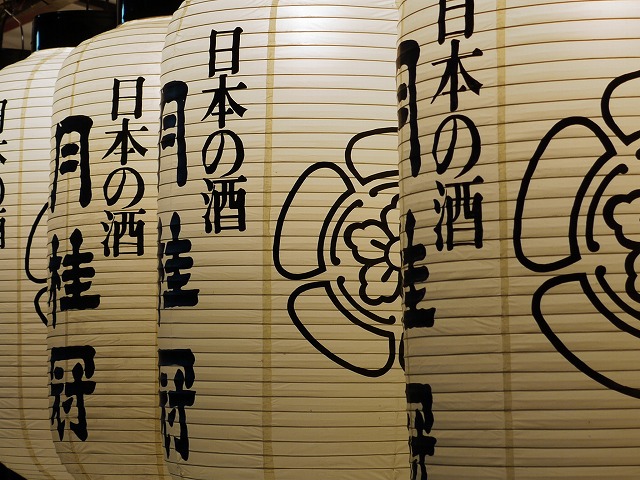 日本の酒
月桂冠
日本の酒
月桂冠
日本の酒
月桂冠
日本の